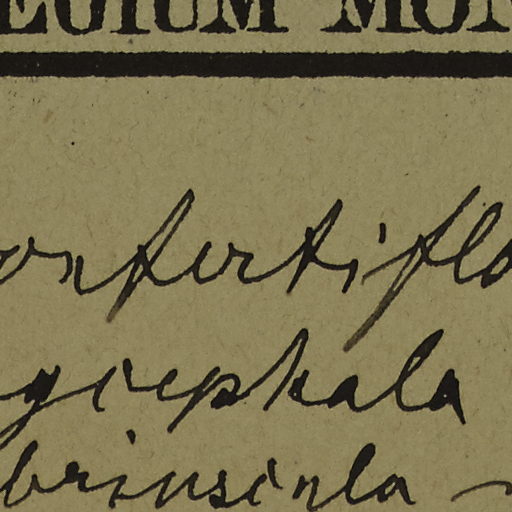 EGIUM MON
onfertiflo
gocephala
briuscula